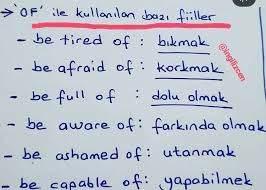 → 'OF' ile kullanılan bazı fiiller
- be tired of : bıkmak
- be afraid of : korkmak
- be full of : dolu olmak
- be aware of : farkında olmak
- be ashamed of : utanmak
- be capable of : yapabilmek
@ingilizcen